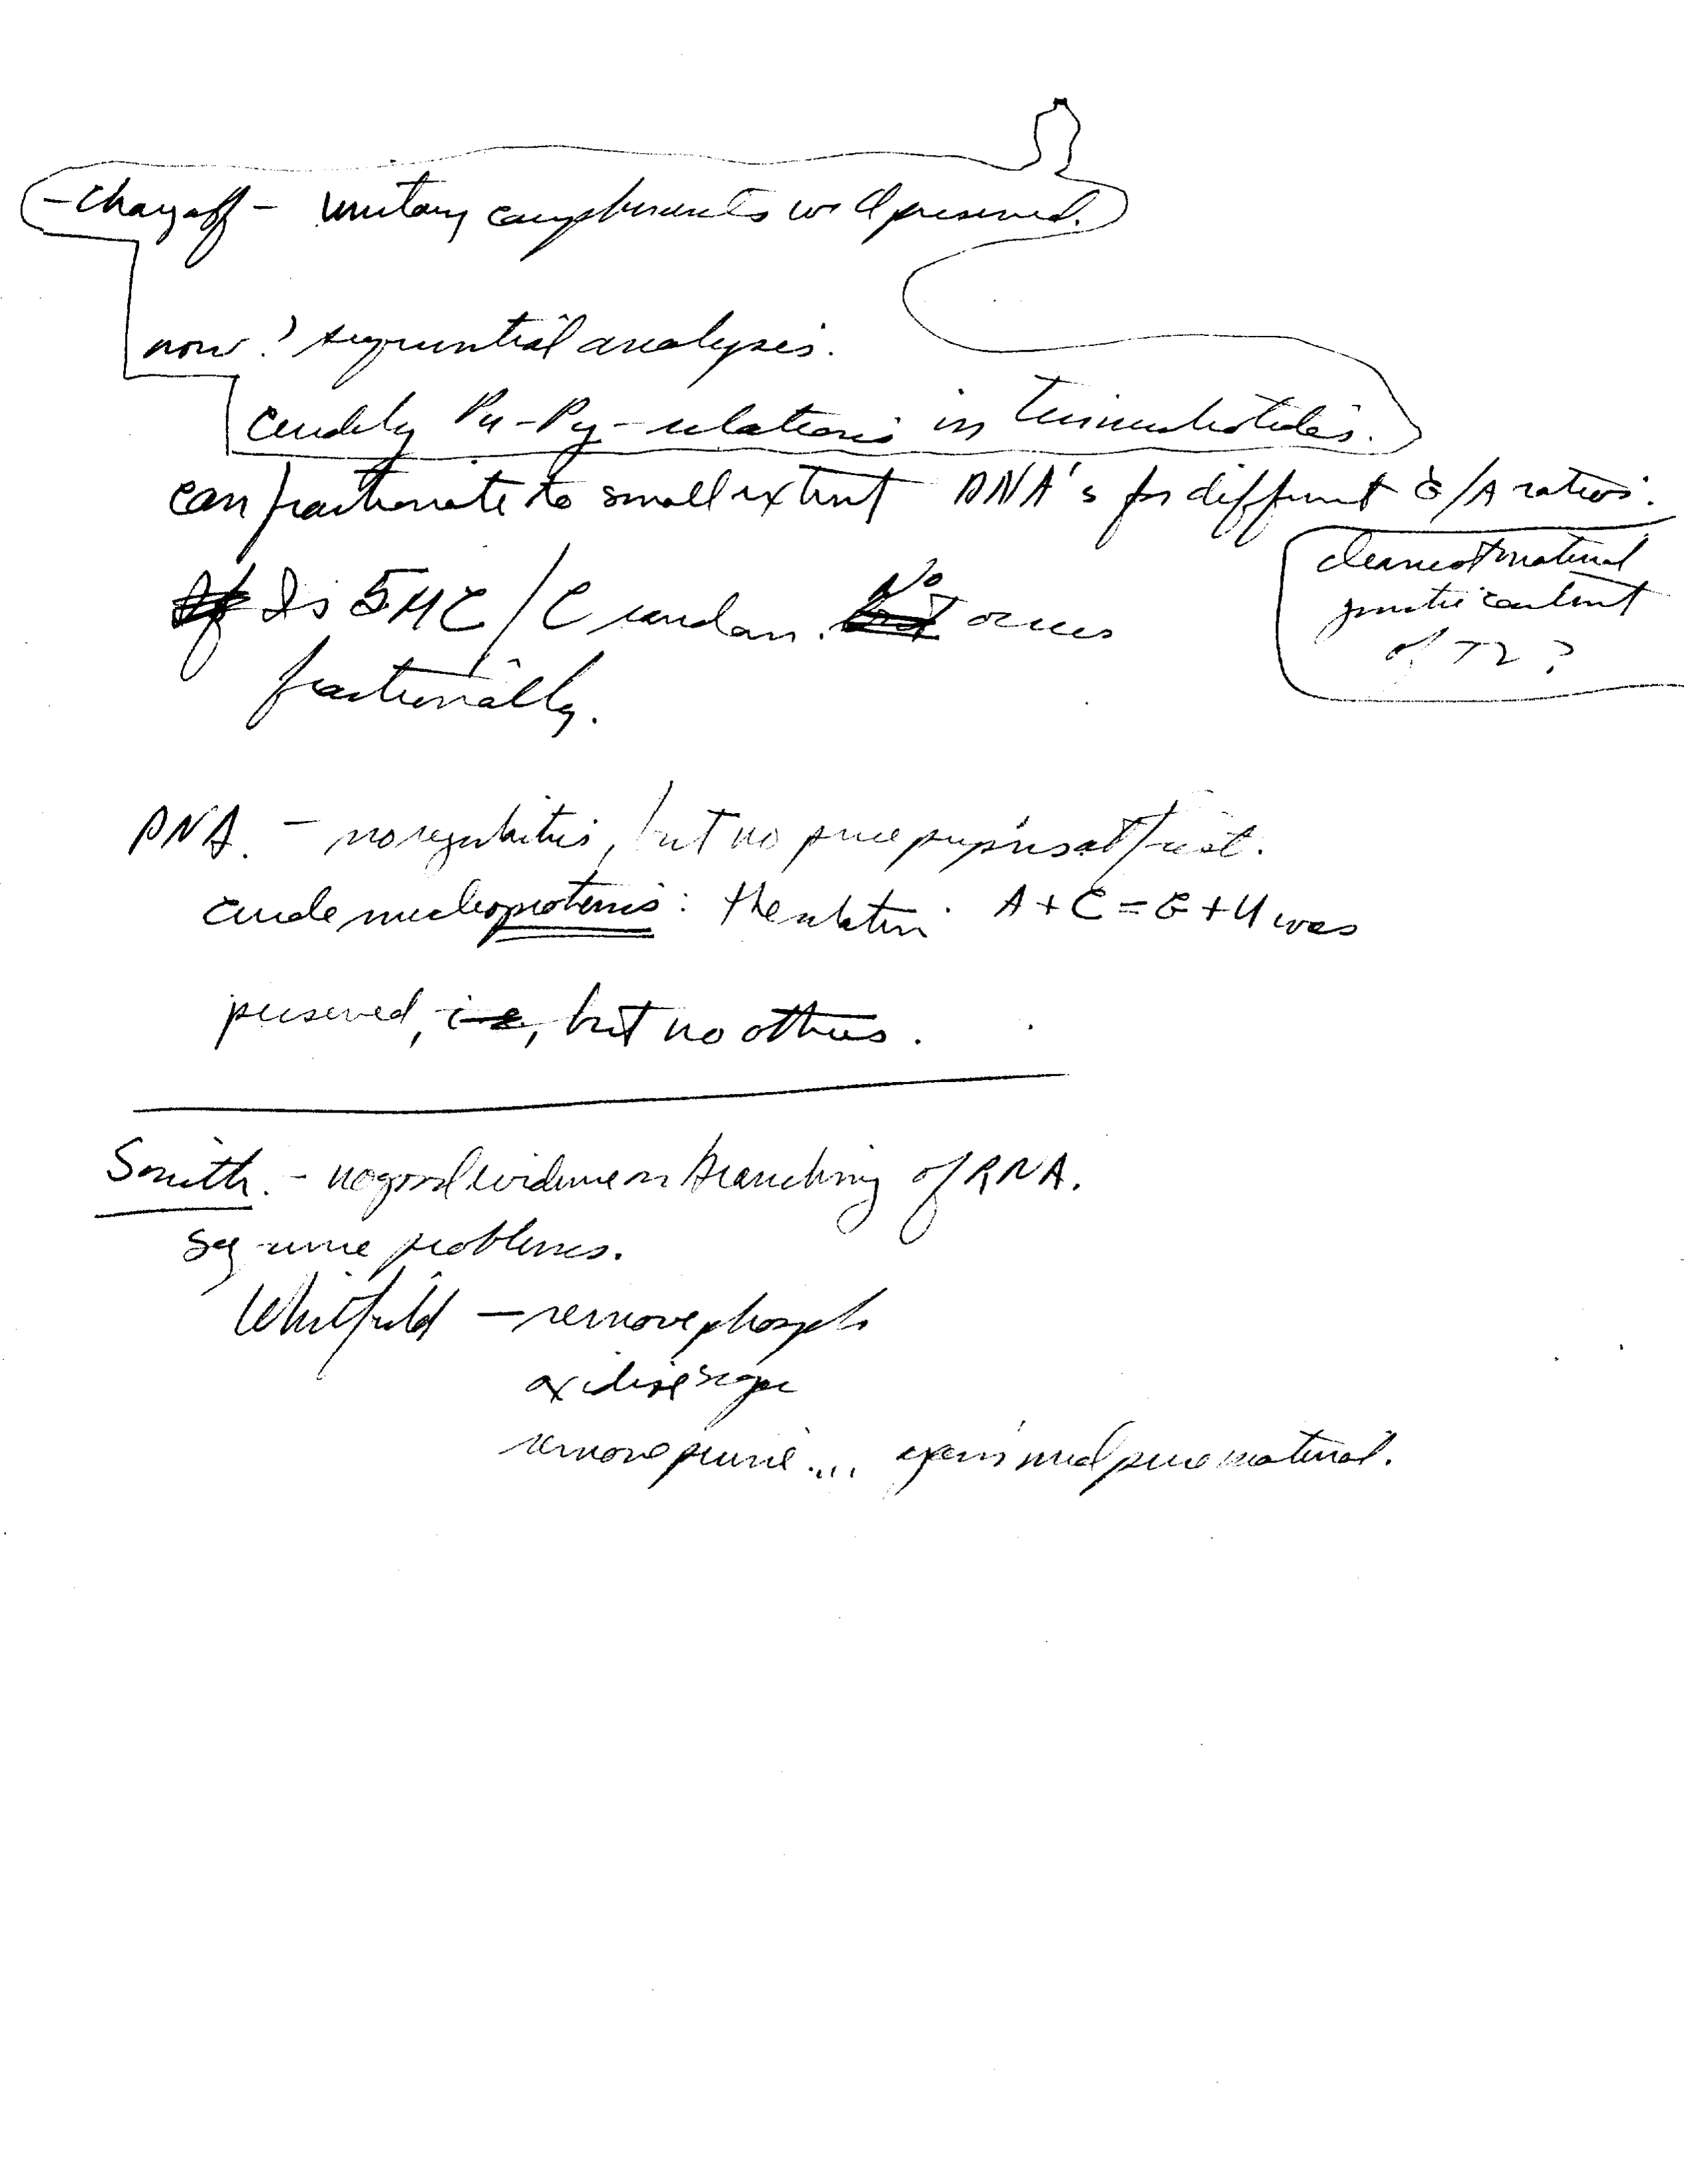 - Chargaff - unitary complements well preserved.
now? sequential analysis.
crudely Pu-Py-relations in trinucleotides.
can fractionate to small extent DNA's for different G/A ratios.
Is 5HMC/C random. No occurs
fractionally.
cleanest material
genetic content
of T2?
RNA. - no regularities, but no pure prep'ns at first.
crude nucleoproteins: the relation A+C=G+U was
preserved, i.e., but no others.
Smith. - no good evidence on branching of RNA.
sequence problems.
Whitfeld - remove phosph
oxidise sugar
remove purine.... requires pure material.